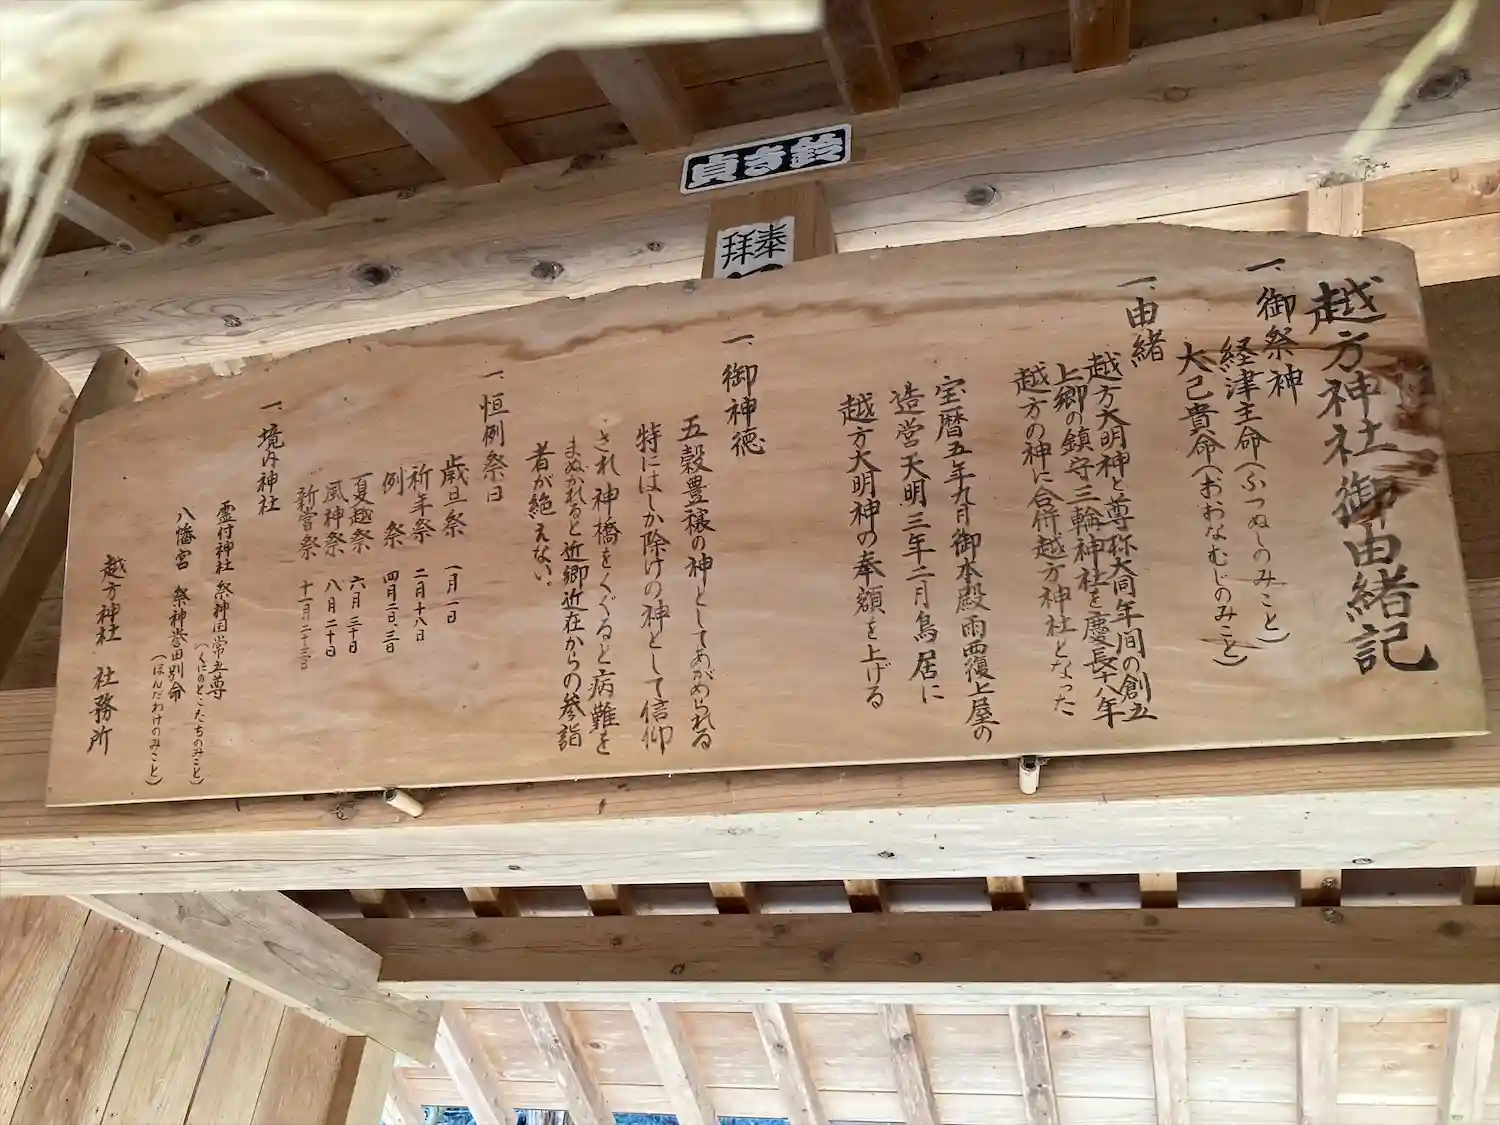 越方神社御由緒記
一、御祭神
経津主命(ふつぬしのみこと)
大己貴命(おおなむじのみこと)
一、由緒
越方大明神と尊称大同年間の創立
上郷の鎮守三輪神社を慶長十八年
越方の神に合併越方神社となった
宝暦五年九月御本殿雨覆上屋の
造営天明三年二月鳥居に
越方大明神の奉額を上げる
一、御神徳
五穀豊穣の神としてあがめられる
特にはしか除けの神として信仰
され神橋をくぐると病難を
まぬかれると近郷近在からの参詣
者が絶えない。
一、恒例祭日
歳旦祭 一月一日
祈年祭 二月十八日
例祭 四月二日、三日
夏越祭 六月三十日
風神祭 八月二十日
新嘗祭 十一月二十三日
一、境内神社
霊符神社 祭神国常立尊
(くにのとこたちのみこと)
八幡宮 祭神誉田別命
(ほんだわけのみこと)
越方神社 社務所
鈴き貞
奉拝